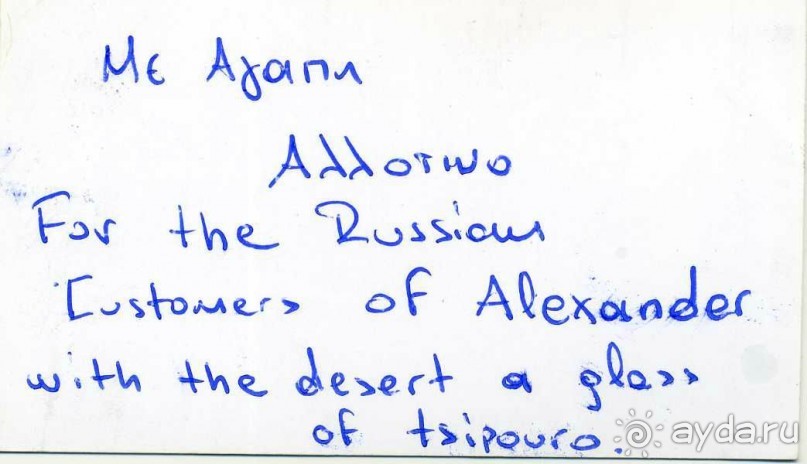 Με Αγαπη
Αλλοτινο
For the Russian
Customers of Alexander
with the desert a glass
of tsipouro.
ayda.ru